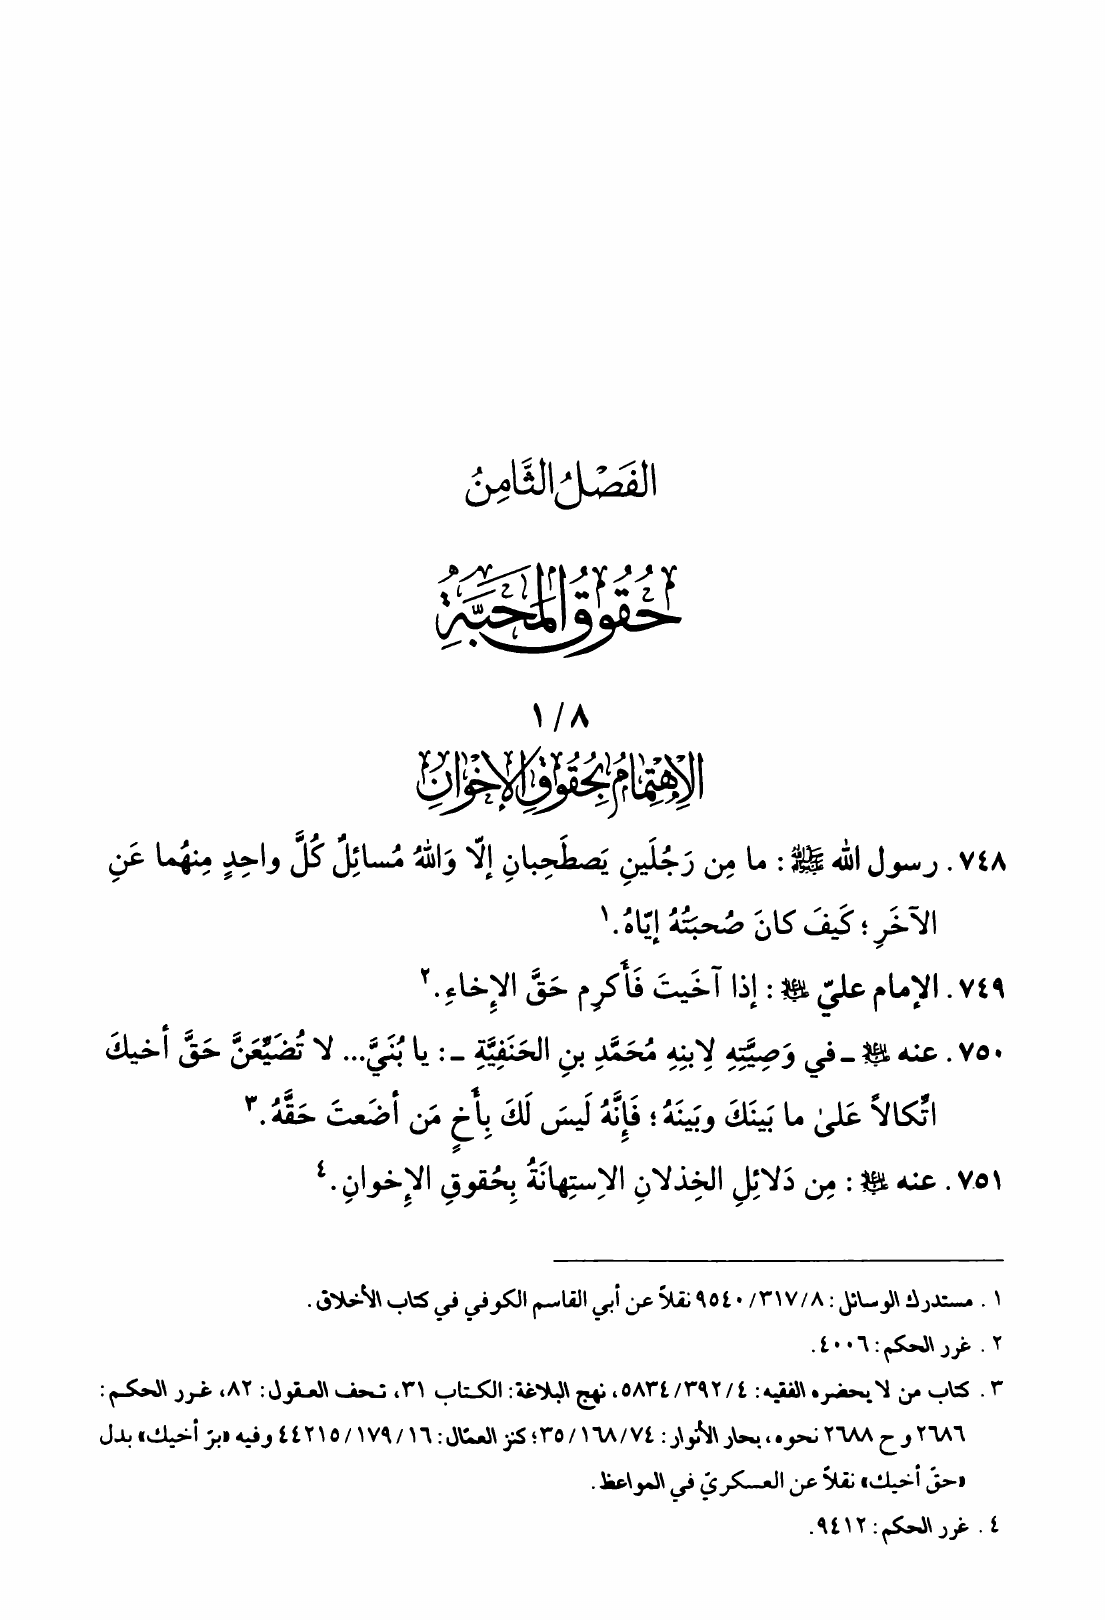 الفَصْلُ الثَّامِنُ
حُقُوقُ المَحَبَّةِ
٨ / ١
الاِهْتِمَامُ بِحُقُوقِ الإِخْوَانِ
٧٤٨. رسول الله ﷺ: ما مِن رَجُلَينِ يَصطَحِبانِ إلّا وَاللهُ مُسائِلٌ كُلَّ واحِدٍ مِنهُما عَنِ
الآخَرِ؛ كَيفَ كانَ صُحبَتُهُ إيّاهُ.١
٧٤٩. الإمام عليّ ﷷ: إذا آخَيتَ فَأَكرِم حَقَّ الإِخاءِ.٢
٧٥٠. عنه ﷷ ـ في وَصِيَّتِهِ لِابنِهِ مُحَمَّدِ بنِ الحَنَفِيَّةِ ـ: يا بُنَيَّ... لا تُضَيِّعَنَّ حَقَّ أخيكَ
اتِّكالاً عَلىٰ ما بَينَكَ وبَينَهُ؛ فَإِنَّهُ لَيسَ لَكَ بِأَخٍ مَن أضَعتَ حَقَّهُ.٣
٧٥١. عنه ﷷ: مِن دَلائِلِ الخِذلانِ الاِستِهانَةُ بِحُقوقِ الإِخوانِ.٤
١. مستدرك الوسائل: ٨/٣١٧/٩٥٤٠ نقلاً عن أبي القاسم الكوفي في كتاب الأخلاق.
٢. غرر الحكم: ٤٠٠٦.
٣. كتاب من لا يحضره الفقيه: ٤/٣٩٢/٥٨٣٤، نهج البلاغة: الكتاب ٣١، تحف العقول: ٨٢، غرر الحكم:
٢٦٨٦ و ح ٢٦٨٨ نحوه، بحار الأنوار: ٧٤/١٦٨/٣٥؛ كنز العمّال: ١٦/١٧٩/٤٤٢١٥ وفيه «برّ أخيك» بدل
«حقّ أخيك» نقلاً عن العسكريّ في المواعظ.
٤. غرر الحكم: ٩٤١٢.